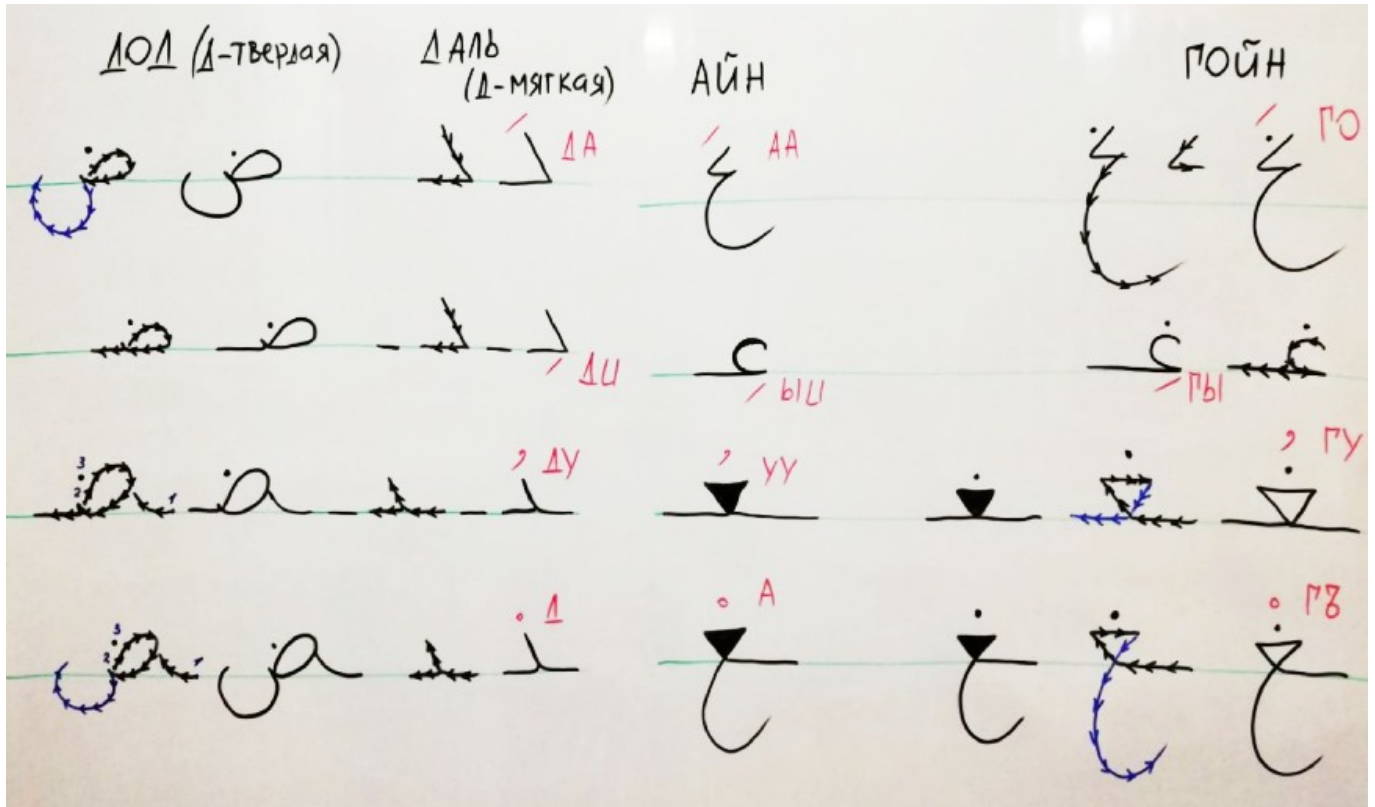 ДОД (Д-твердая) ДАЛЬ (Д-мягкая) АЙН ГОЙН
ض ض د دَ ДА عَ АА غ غَ ГО
ضـ ضـ د دِ ДИ عِـ ЫИ غِـ ГЫ غـ
3 2 1 ـضـ ـضـ ـد ـدُ ДУ ـعُـ УУ ـغـ ـغـ ـغُـ ГУ
3 2 1 ـض ـض ـد ـدْ Д ـعْ А ـغ ـغ ـغْ ГЪ